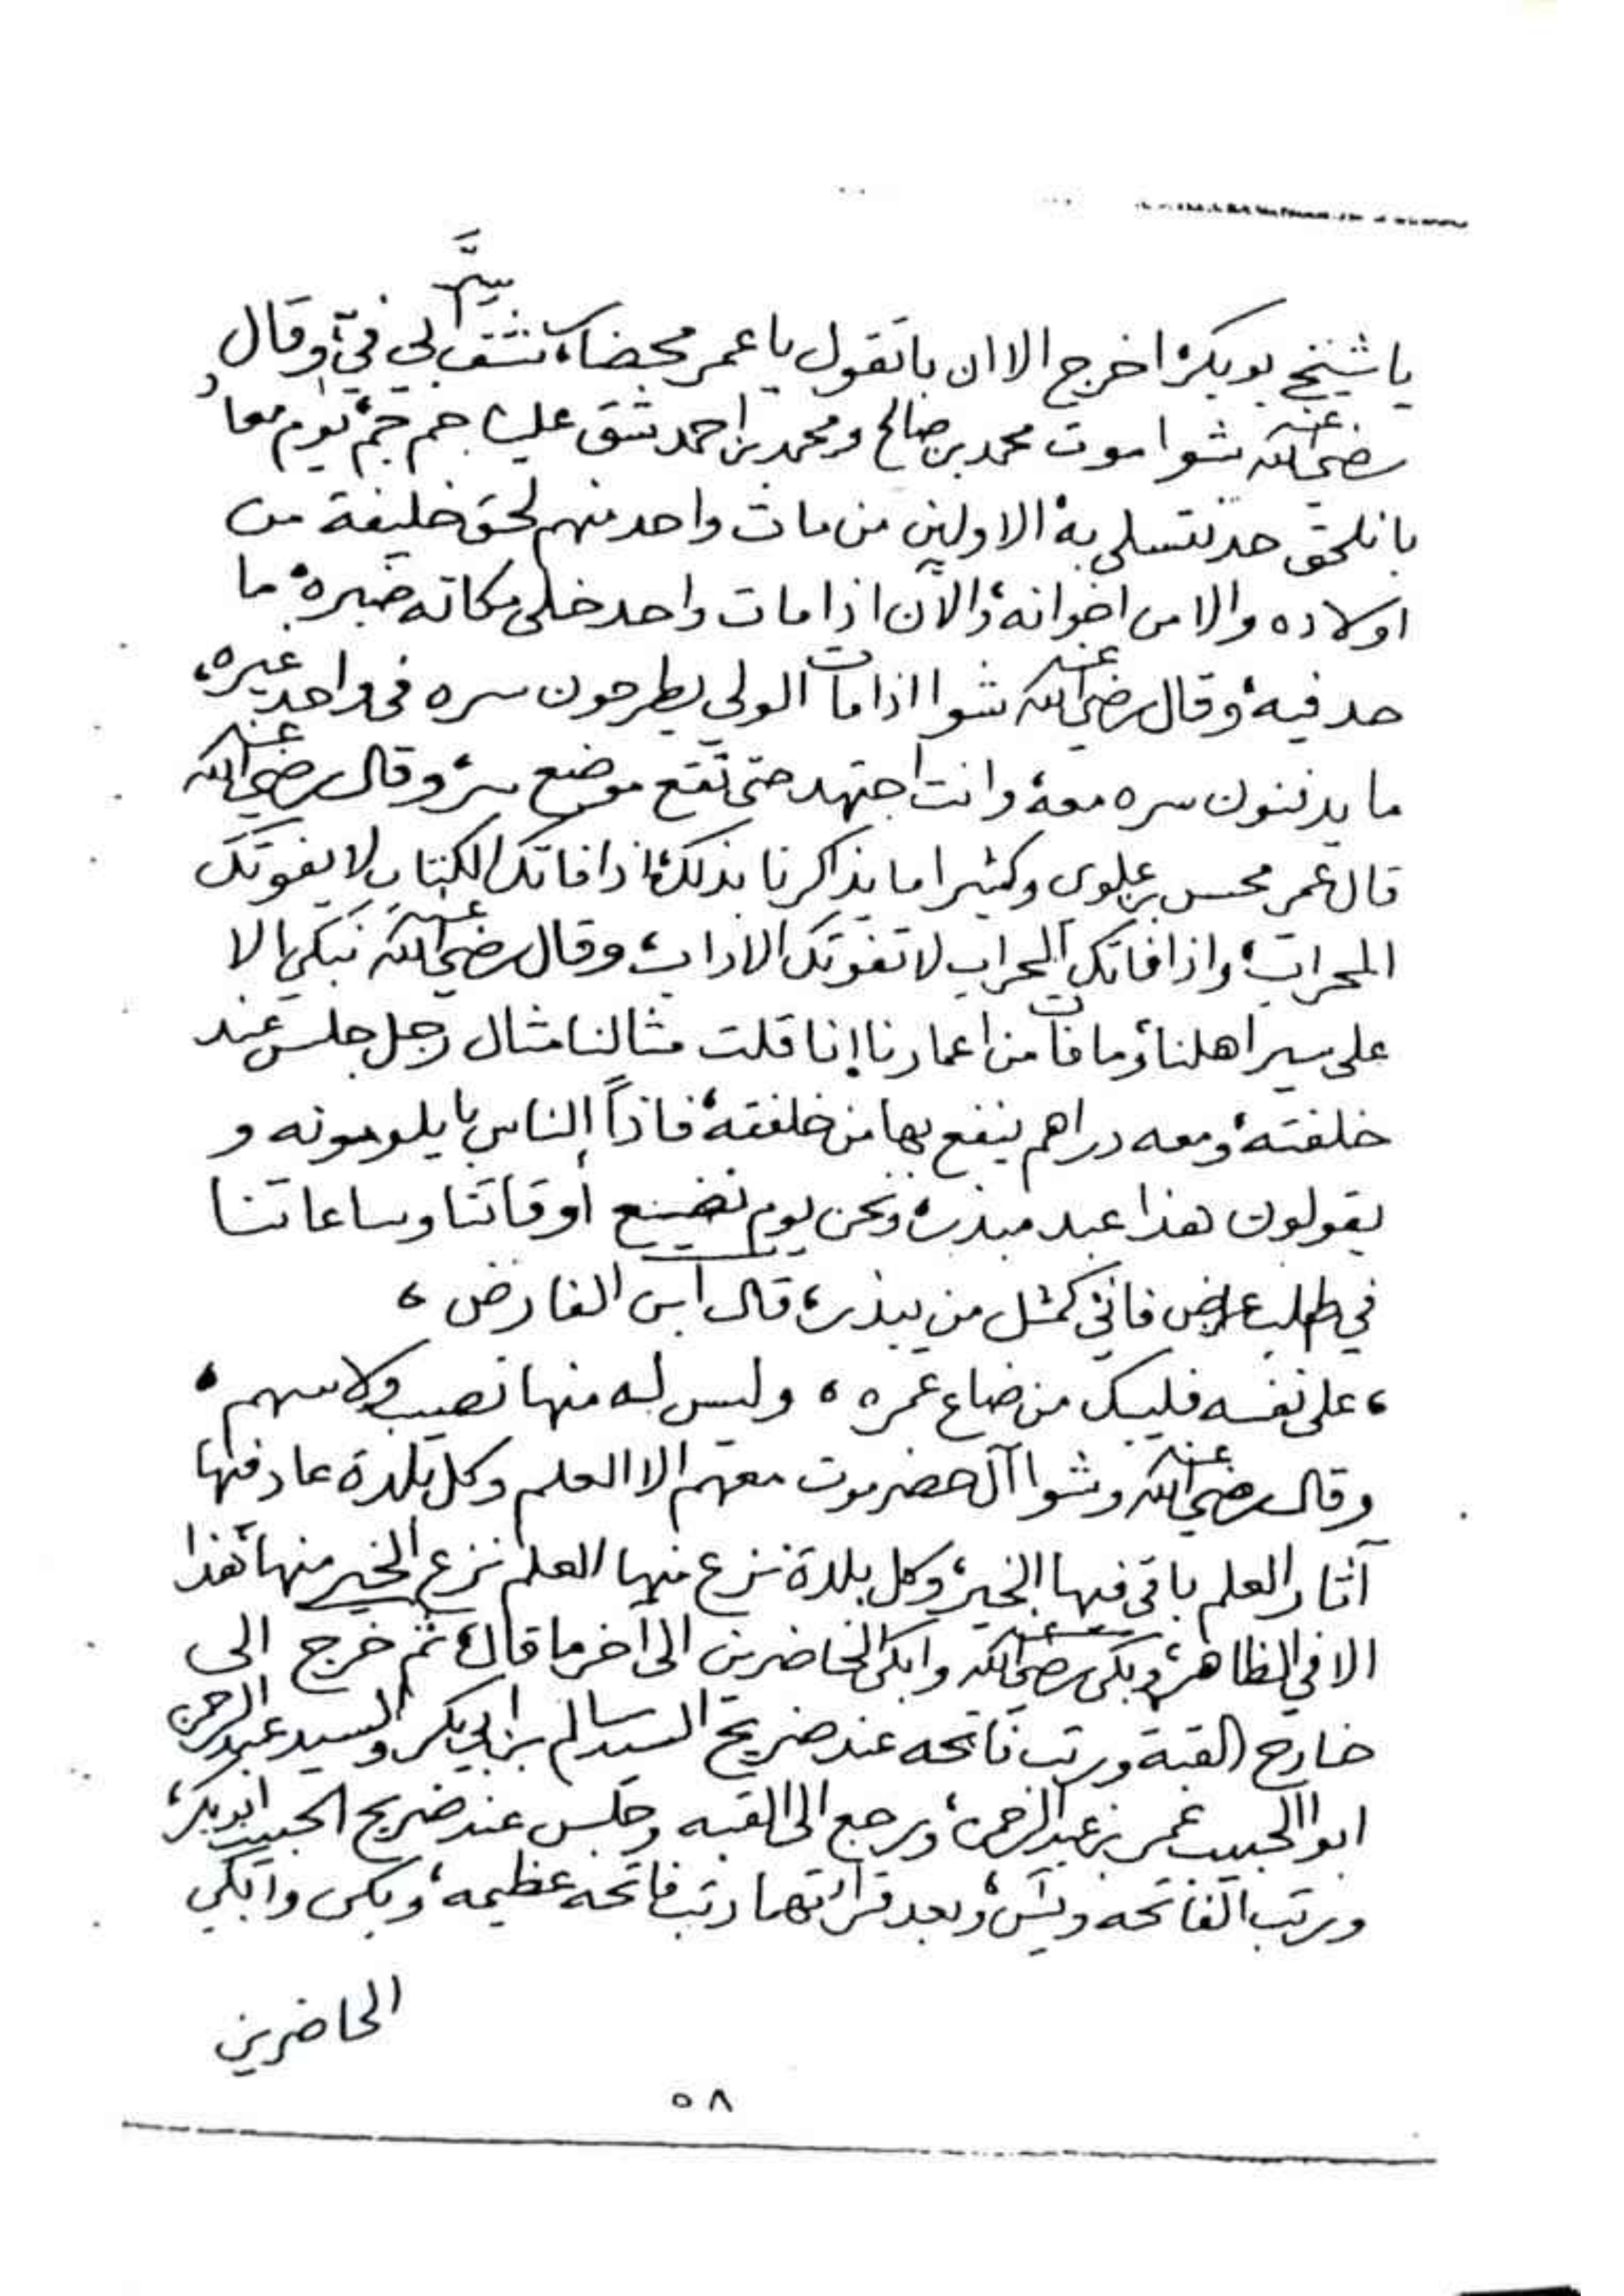 يا شيخ بوبكر، اخرج الا ان باتقول يا عمر محضار، لي في، وقال
رضي الله عنه شوا موت محمد بن صالح ومحمد بن احمد شق علينا جم جم، يوم معاد
بانلحق حد نتسلى به، الاولين من مات واحد منهم لحق خليفة من
اولاده والا من اخوانه، والآن اذا مات واحد خلى مكانه صبره، ما
حد فيه، وقال رضي الله عنه شوا اذا مات الولي يطرحون سره في واحد غيره،
ما يدفنون سره معه، وانت اجتهد حتى تقع موضع سر، وقال رضي الله عنه
قال عمر محسن بن علوي وكثيرا ما يذاكرنا بذلك، اذا فاتك الكتاب لا يفوتك
المحراب، واذا فاتك المحراب لا تفوتك الاداب، وقال رضي الله عنه نبكي الا
على سير اهلنا، وما فات من اعمارنا، انا قلت مثالنا مثال رجل جلس عند
خلفته، ومعه دراهم ينفع بها من خلفته، فاذاً الناس با يلومونه و
يقولون هذا عبد مبذر، ونحن يوم نضيع أوقاتنا وساعاتنا
في طلب عارض فاني كمثل من يبذر، قال ابن الفارض،
، على نفسه فليبك من ضاع عمره ، وليس له منها نصيب ولا سهم ،
وقال رضي الله عنه وشوا آل حضرموت معهم الا العلم وكل بلدة عاد فيها
آثار العلم باقي فيها الخير، وكل بلدة نزع منها العلم نزع الخير منها، هذا
الا في الظاهر، وبكى رضي الله عنه وابكى الحاضرين الى آخر ما قال، ثم خرج الى
خارج القبة ورتب فاتحه عند ضريح السيد سالم بن ابي بكر والسيد عبد الرحمن
ابو الحبيب عمر بن عبد الرحمن، ورجع الى القبه وجلس عند ضريح الحبيب ابوبكر،
ورتب الفاتحه ويس، وبعد قرائتهما رتب فاتحه عظيمه، وبكى وابكى
الحاضرين
٥٨